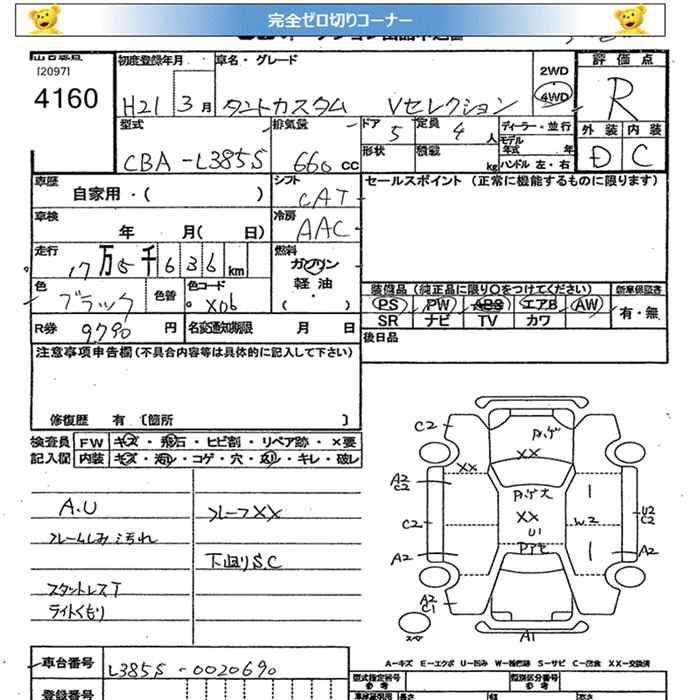 完全ゼロ切りコーナー
[2097]
4160
初度登録年月
H21 3月
車名・グレード
タントカスタム Vセレクション
2WD
4WD
評価点
R
外装 内装
D C
型式
CBA-L385S
排気量
660 cc
ドア 5
定員 4 人
形状
積載 kg
ディーラー・並行
モデル年式 年
ハンドル 左・右
車歴
自家用・( )
シフト
CAT
セールスポイント (正常に機能するものに限ります)
車検
年 月( 日)
冷房
AAC
走行
17万5千636km
燃料
ガソリン
軽油
( ・ )
色
ブラック
色替
色コード
X06
装備品 (純正品に限り○をつけてください)
PS PW ABS エアB AW
SR ナビ TV カワ
新車保証書
有・無
R券 9790 円
名変通知期限 月 日
後日品
注意事項申告欄 (不具合内容等は具体的に記入して下さい)
修復歴 有 〔箇所 〕
検査員 FW キズ・飛石・ヒビ割・リペア跡・×要
記入欄 内装 キズ・汚れ・コゲ・穴・スリ・キレ・破レ
A.U
フレームしみ汚れ
スタントレスT
ライトくもり
ルーフXX
下廻りS.C
C2
XX
XX
A2
C2
C2
A2
XX
U1
W2
U2
C2
A2
A2
C1
A1
スペア
A-キズ E-エクボ U-凹み W-補修跡 S-サビ C-腐食 XX-交換済
車台番号 L385S-0020690
登録番号
型式指定番号
参考
類別区分番号
参考
車検証明用 長さ 幅 高さ